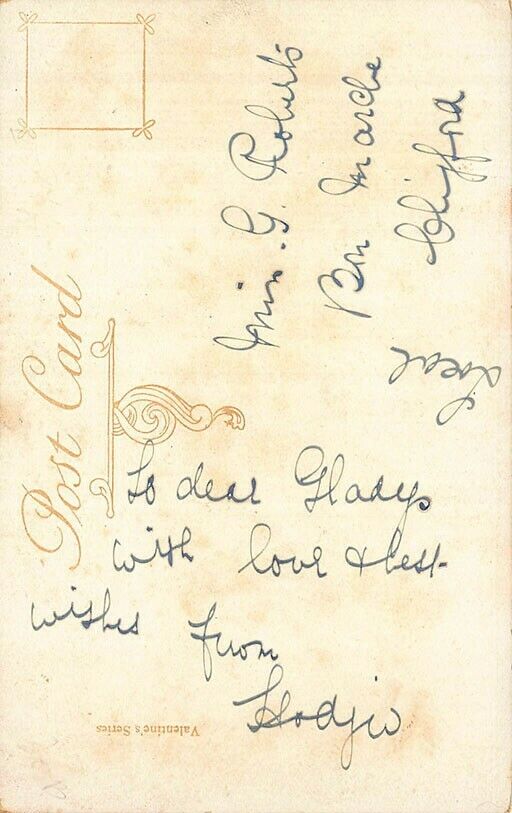 Post Card
Miss. G. Roberts
Bon Marche
Chigford
Local
To dear Gladys
with love & best
wishes from
Valentine's Series